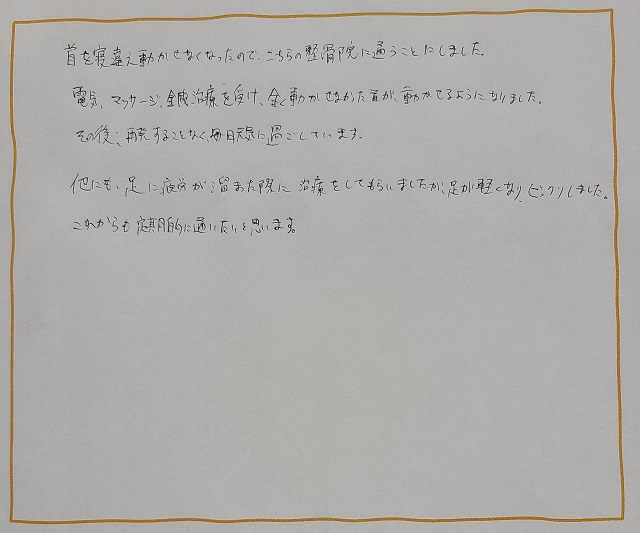 首を寝違え動かせなくなったので、こちらの整骨院に通うことにしました。
電気、マッサージ、鍼治療を受け、全く動かせなかった首が、動かせるようになりました。
その後、再発することなく、毎日元気に過ごしています。
他にも、足に疲労が溜まった際に治療をしてもらいましたが、足が軽くなり、ビックリしました。
これからも定期的に通いたいと思います。